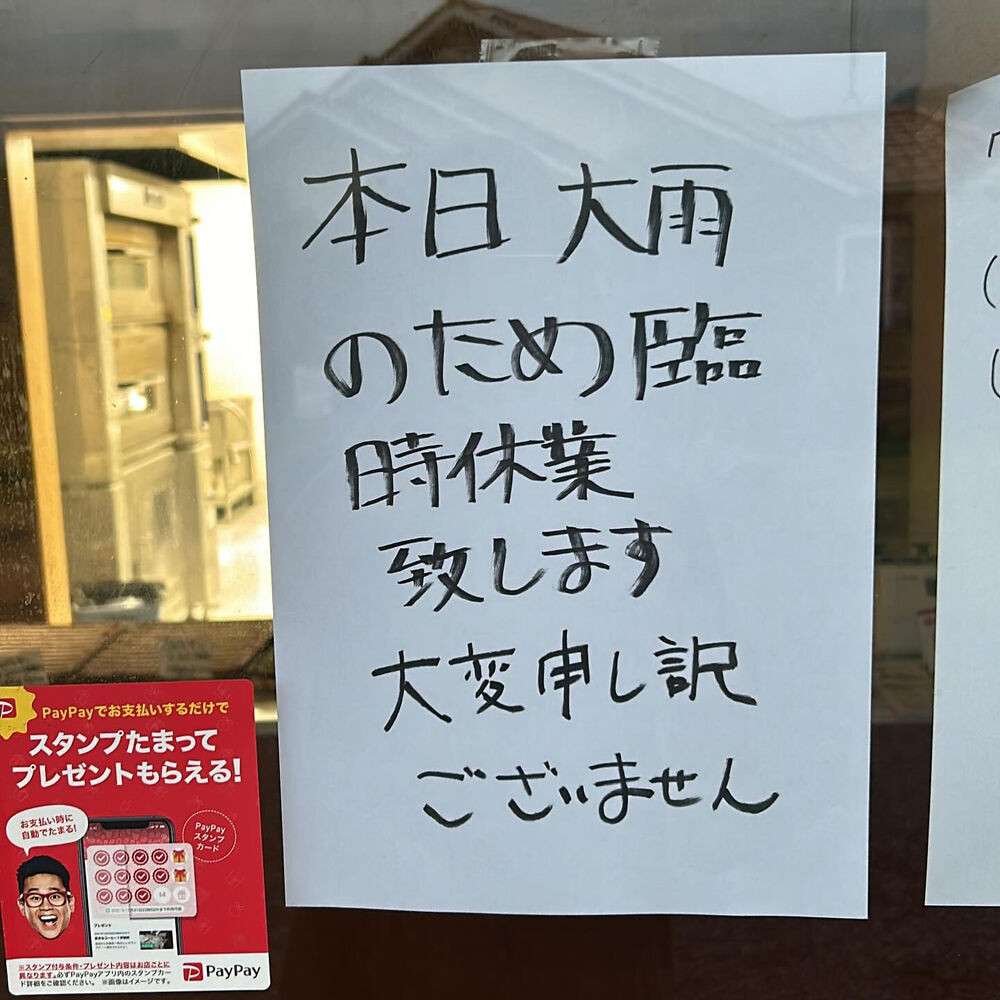 本日 大雨
のため臨
時休業
致します
大変申し訳
ございません
PayPayでお支払いするだけで
スタンプたまって
プレゼントもらえる!
お支払い時に
自動でたまる!
PayPay
スタンプ
カード
14
プレゼント
※スタンプ付与条件・プレゼント内容はお店ごとに
異なります。必ずPayPayアプリ内のスタンプカー
ド詳細をご確認ください。 ※画像はイメージです。
PayPay